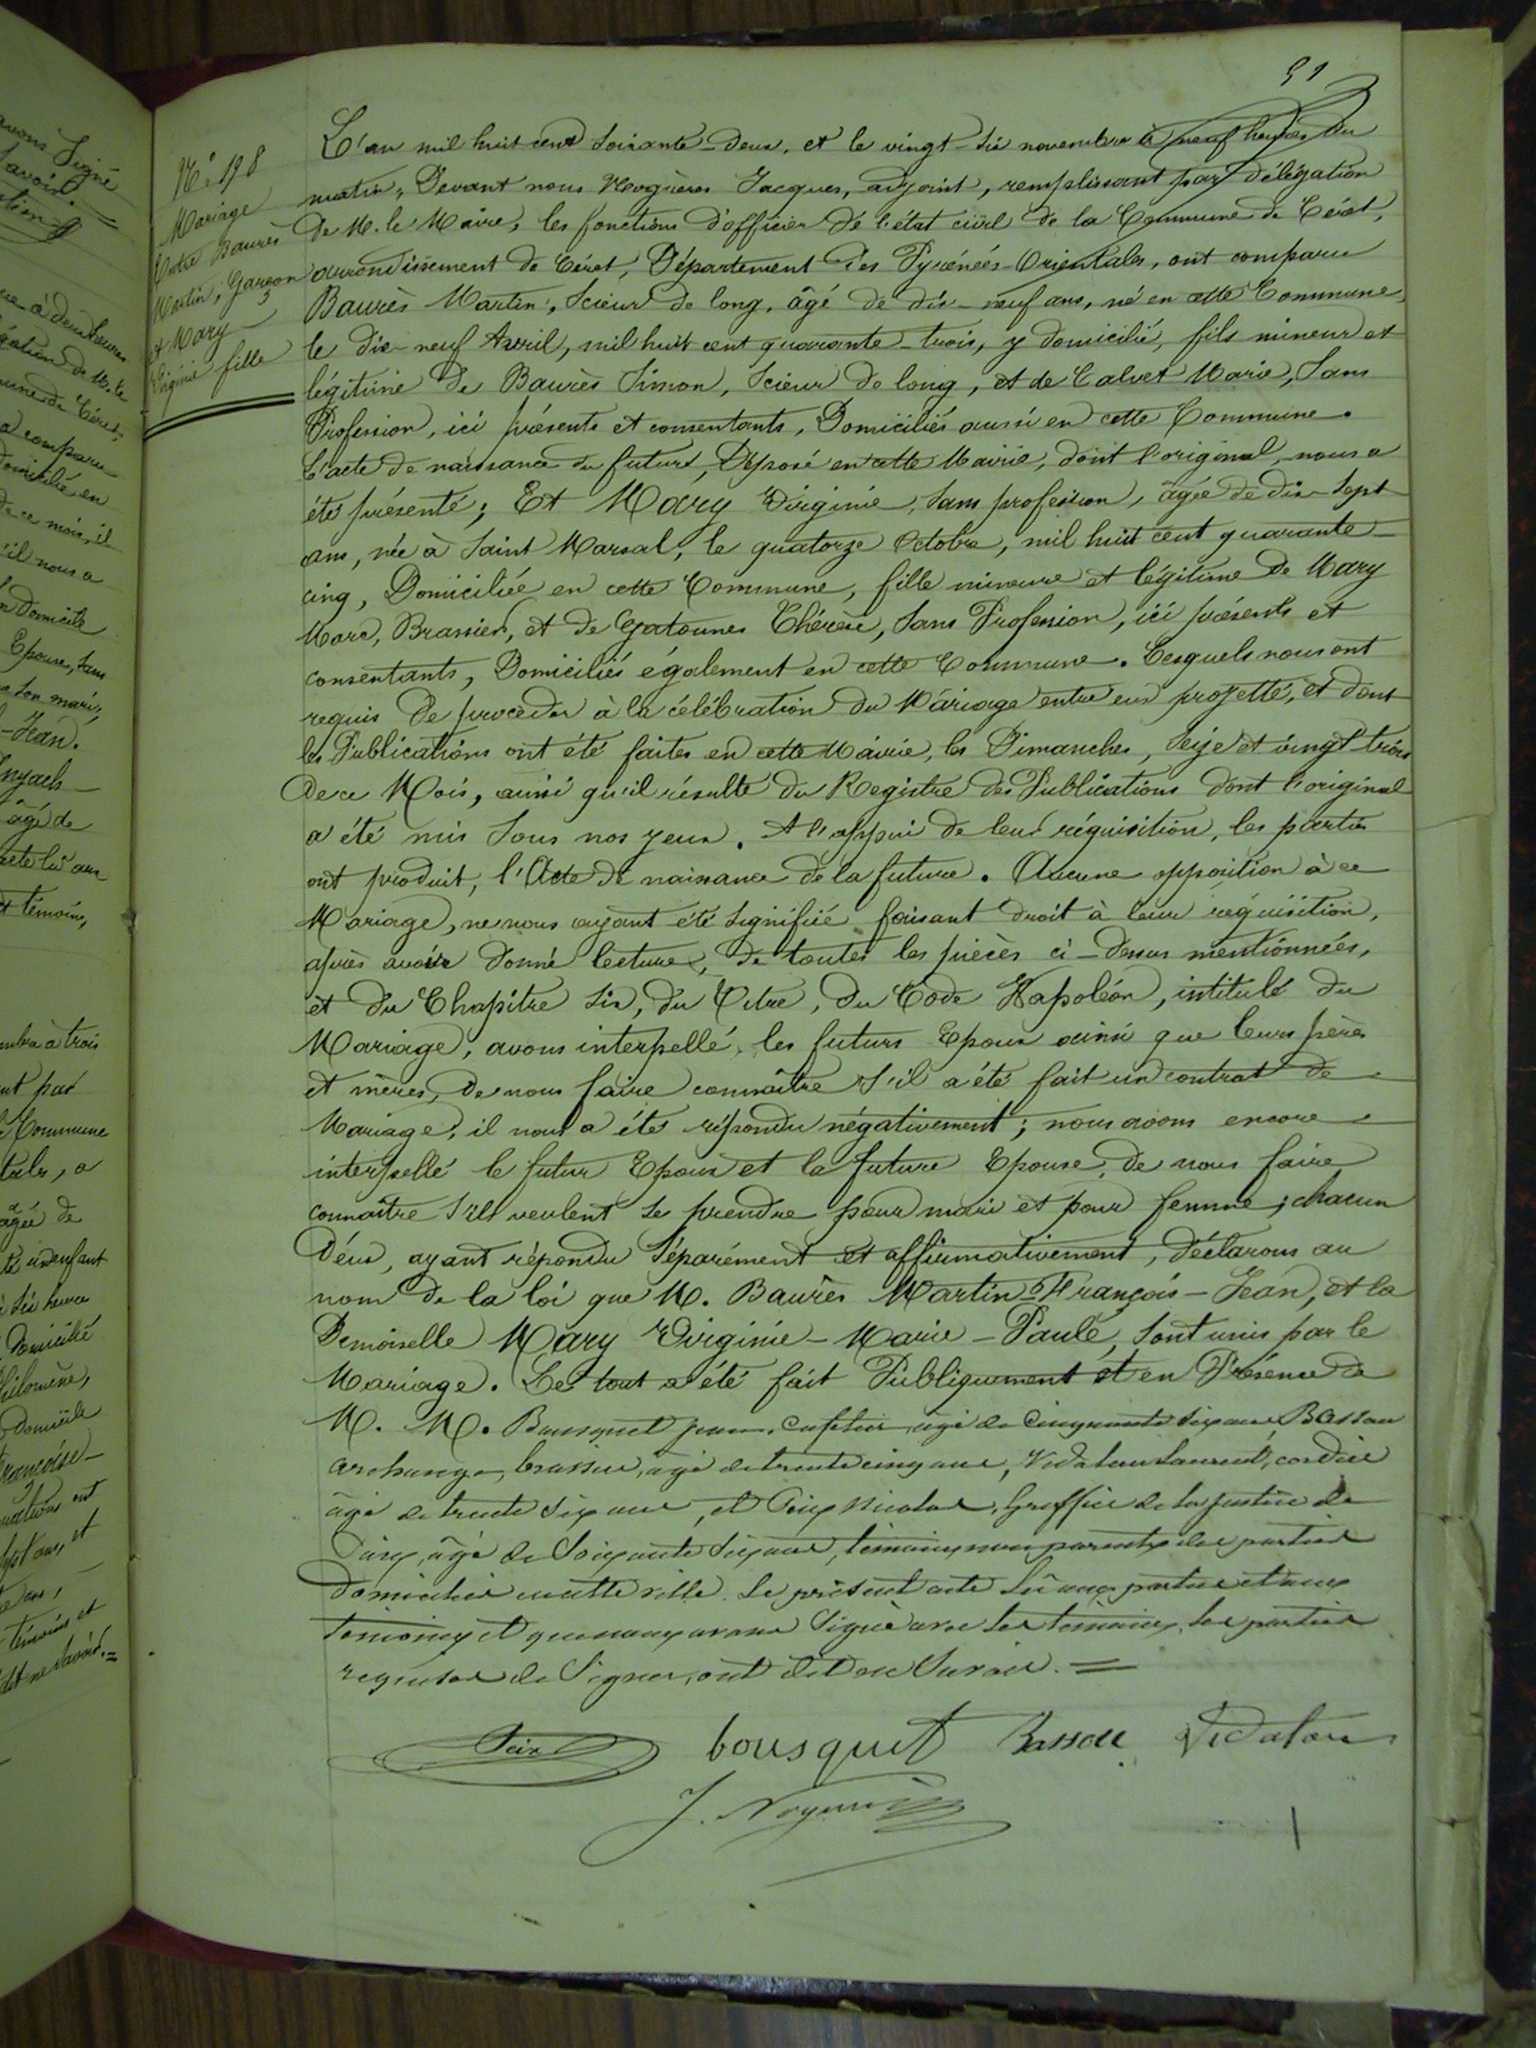 51
N.º 198
Mariage
Entre Baurès
Martin, Garçon
et Mary
Virginie fille
L'an mil huit cent soixante-deux, et le vingt-six novembre à neuf heures du
matin, Devant nous Noguères Jacques, adjoint, remplissant par délégation
de M. le Maire, les fonctions d'officier de l'état civil de la Commune de Céret,
arrondissement de Céret, Département des Pyrénées-Orientales, ont comparu
Baurès Martin, Scieur de long, âgé de dix-neuf ans, né en cette Commune,
le dix-neuf Avril, mil huit cent quarante-trois, y domicilié, fils mineur et
légitime de Baurès Simon, Scieur de long, et de Calvet Marie, Sans
Profession, ici présents et consentants, Domiciliés aussi en cette Commune.
L'acte de naissance du futur, Déposé en cette Mairie, dont l'original nous a
été présenté; Et Mary Virginie, Sans profession, âgée de dix-Sept
ans, née à Saint Marsal, le quatorze Octobre, mil huit cent quarante-
cinq, Domiciliée en cette Commune, fille mineure et légitime de Mary
Marc, Brassier, et de Gatounes Thérèse, Sans Profession, ici présents et
consentants, Domiciliés également en cette Commune. Lesquels nous ont
requis de procéder à la célébration du Mariage entre eux projetté, et dont
les Publications ont été faites en cette Mairie, les Dimanches, Seize et vingt-trois
de ce Mois, ainsi qu'il résulte du Registre des Publications dont l'original
a été mis sous nos yeux. A l'appui de leur réquisition, les parties
ont produit, l'Acte de naissance de la future. Aucune opposition à ce
Mariage, ne nous ayant été signifiée faisant droit à leur réquisition,
après avoir donné lecture, de toutes les pièces ci-dessus mentionnées,
et du Chapitre Six, du Titre, du Code Napoléon, intitulé du
Mariage, avons interpellé les futurs Epoux ainsi que leurs pères
et mères, de nous faire connaître s'il a été fait un contrat de
Mariage, il nous a été répondu négativement; nous avons encore
interpellé le futur Epoux et la future Epouse, de nous faire
connaître s'ils veulent se prendre pour mari et pour femme; chacun
d'eux, ayant répondu séparément et affirmativement, déclarons au
nom de la loi que M. Baurès Martin-François-Jean, et la
Demoiselle Mary Virginie-Marie-Paule, sont unis par le
Mariage. Le tout a été fait Publiquement et en Présence de
M. M. Bousquet jean, cafetier âgé de Cinquante six ans, Bassou
archange, brassier, âgé de trente cinq ans, Vidalou Laurent, cordier
âgé de trente Six ans, et Peix Nicolas, Greffier de la justice de
Paix, âgé de Soixante Six ans, témoins non parents des parties
domiciliés en cette ville. Le présent acte lû aux parties et aux
témoins et que nous avons Signé avec les témoins, les parties
requises de Signer, ont dit ne Savoir.
Peix bousquet Bassou Vidalou
J. Noguères